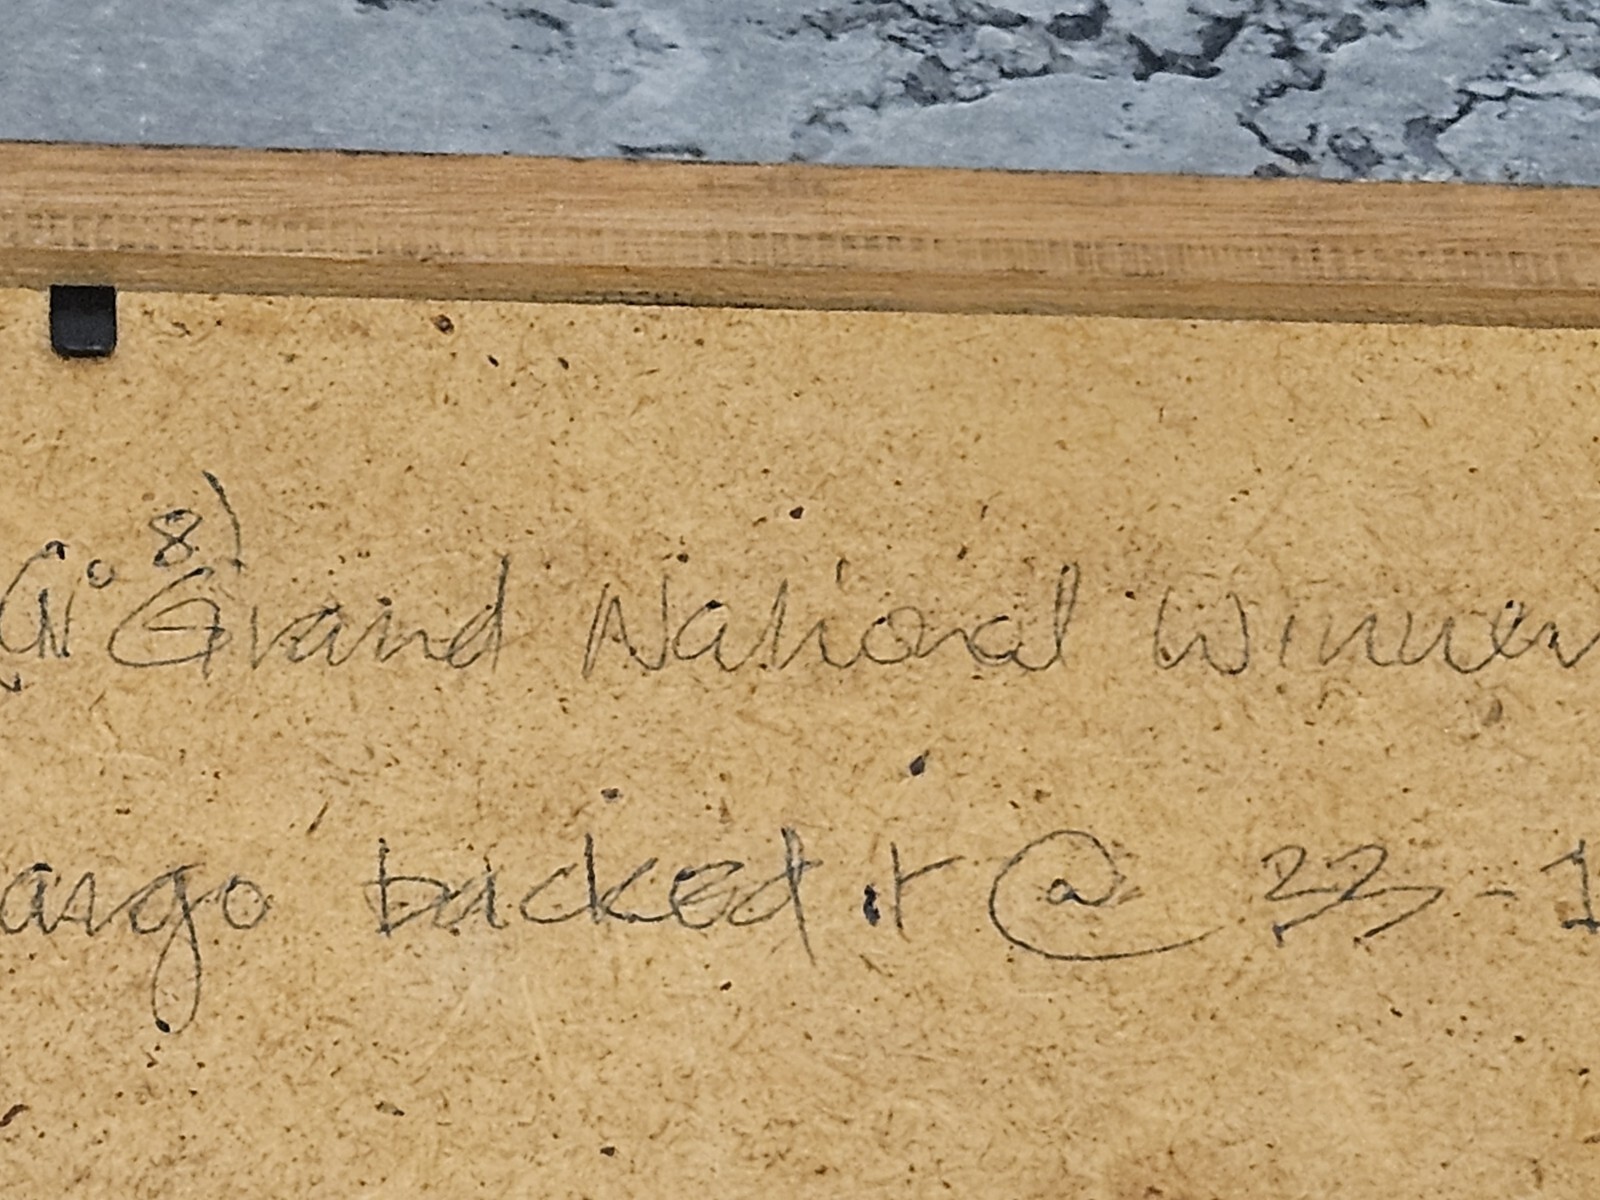 (N° 8) Grand National Winner
argo backed it @ 33-1